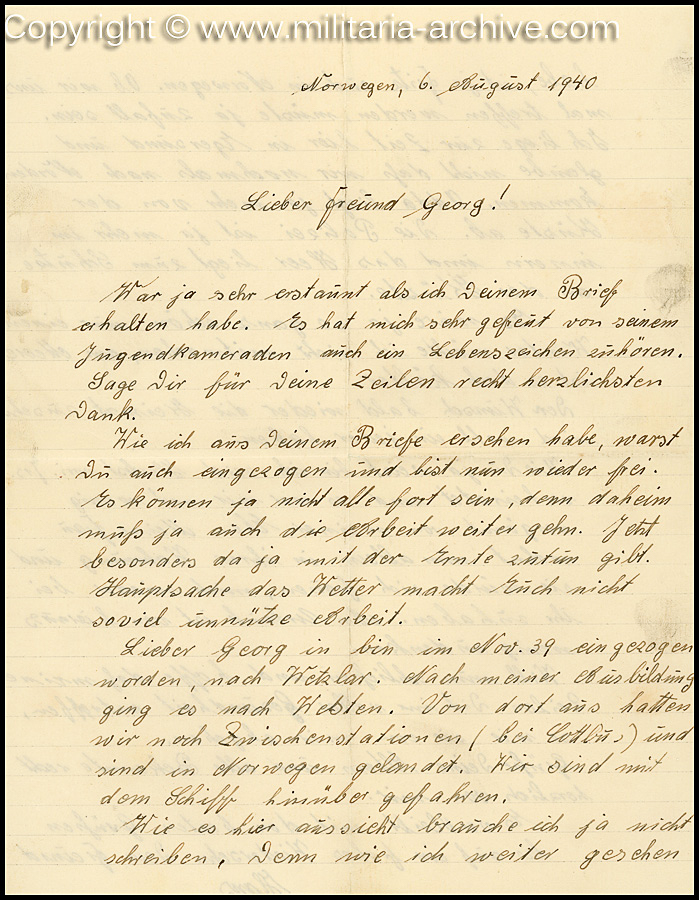 Copyright © www.militaria-archive.com
Norwegen, 6. August 1940
Lieber Freund Georg!
War ja sehr erstaunt als ich Deinem Brief
erhalten habe. Es hat mich sehr gefeut von seinem
Jugendkameraden auch ein Lebenszeichen zuhören.
Sage Dir für Deine Zeilen recht herzlichsten
Dank.
Wie ich aus Deinem Briefe ersehen habe, warst
Du auch eingezogen und bist nun wieder frei.
Es können ja nicht alle fort sein, denn daheim
muß ja auch die Arbeit weiter gehn. Jetzt
besonders da ja mit der Ernte zutun gibt.
Hauptsache das Wetter macht Euch nicht
soviel unnütze Arbeit.
Lieber Georg in bin im Nov. 39 eingezogen
worden, nach Wetzlar. Nach meiner Ausbildung
ging es nach Westen. Von dort aus hatten
wir noch Zwischenstationen (bei Cottbus) und
sind in Norwegen gelandet. Wir sind mit
dem Schiff hinüber gefahren.
Wie es hier aussieht brauche ich ja nicht
schreiben, Denn wie ich weiter gesehen